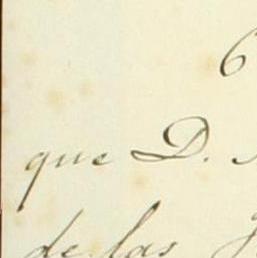 que D.
de las